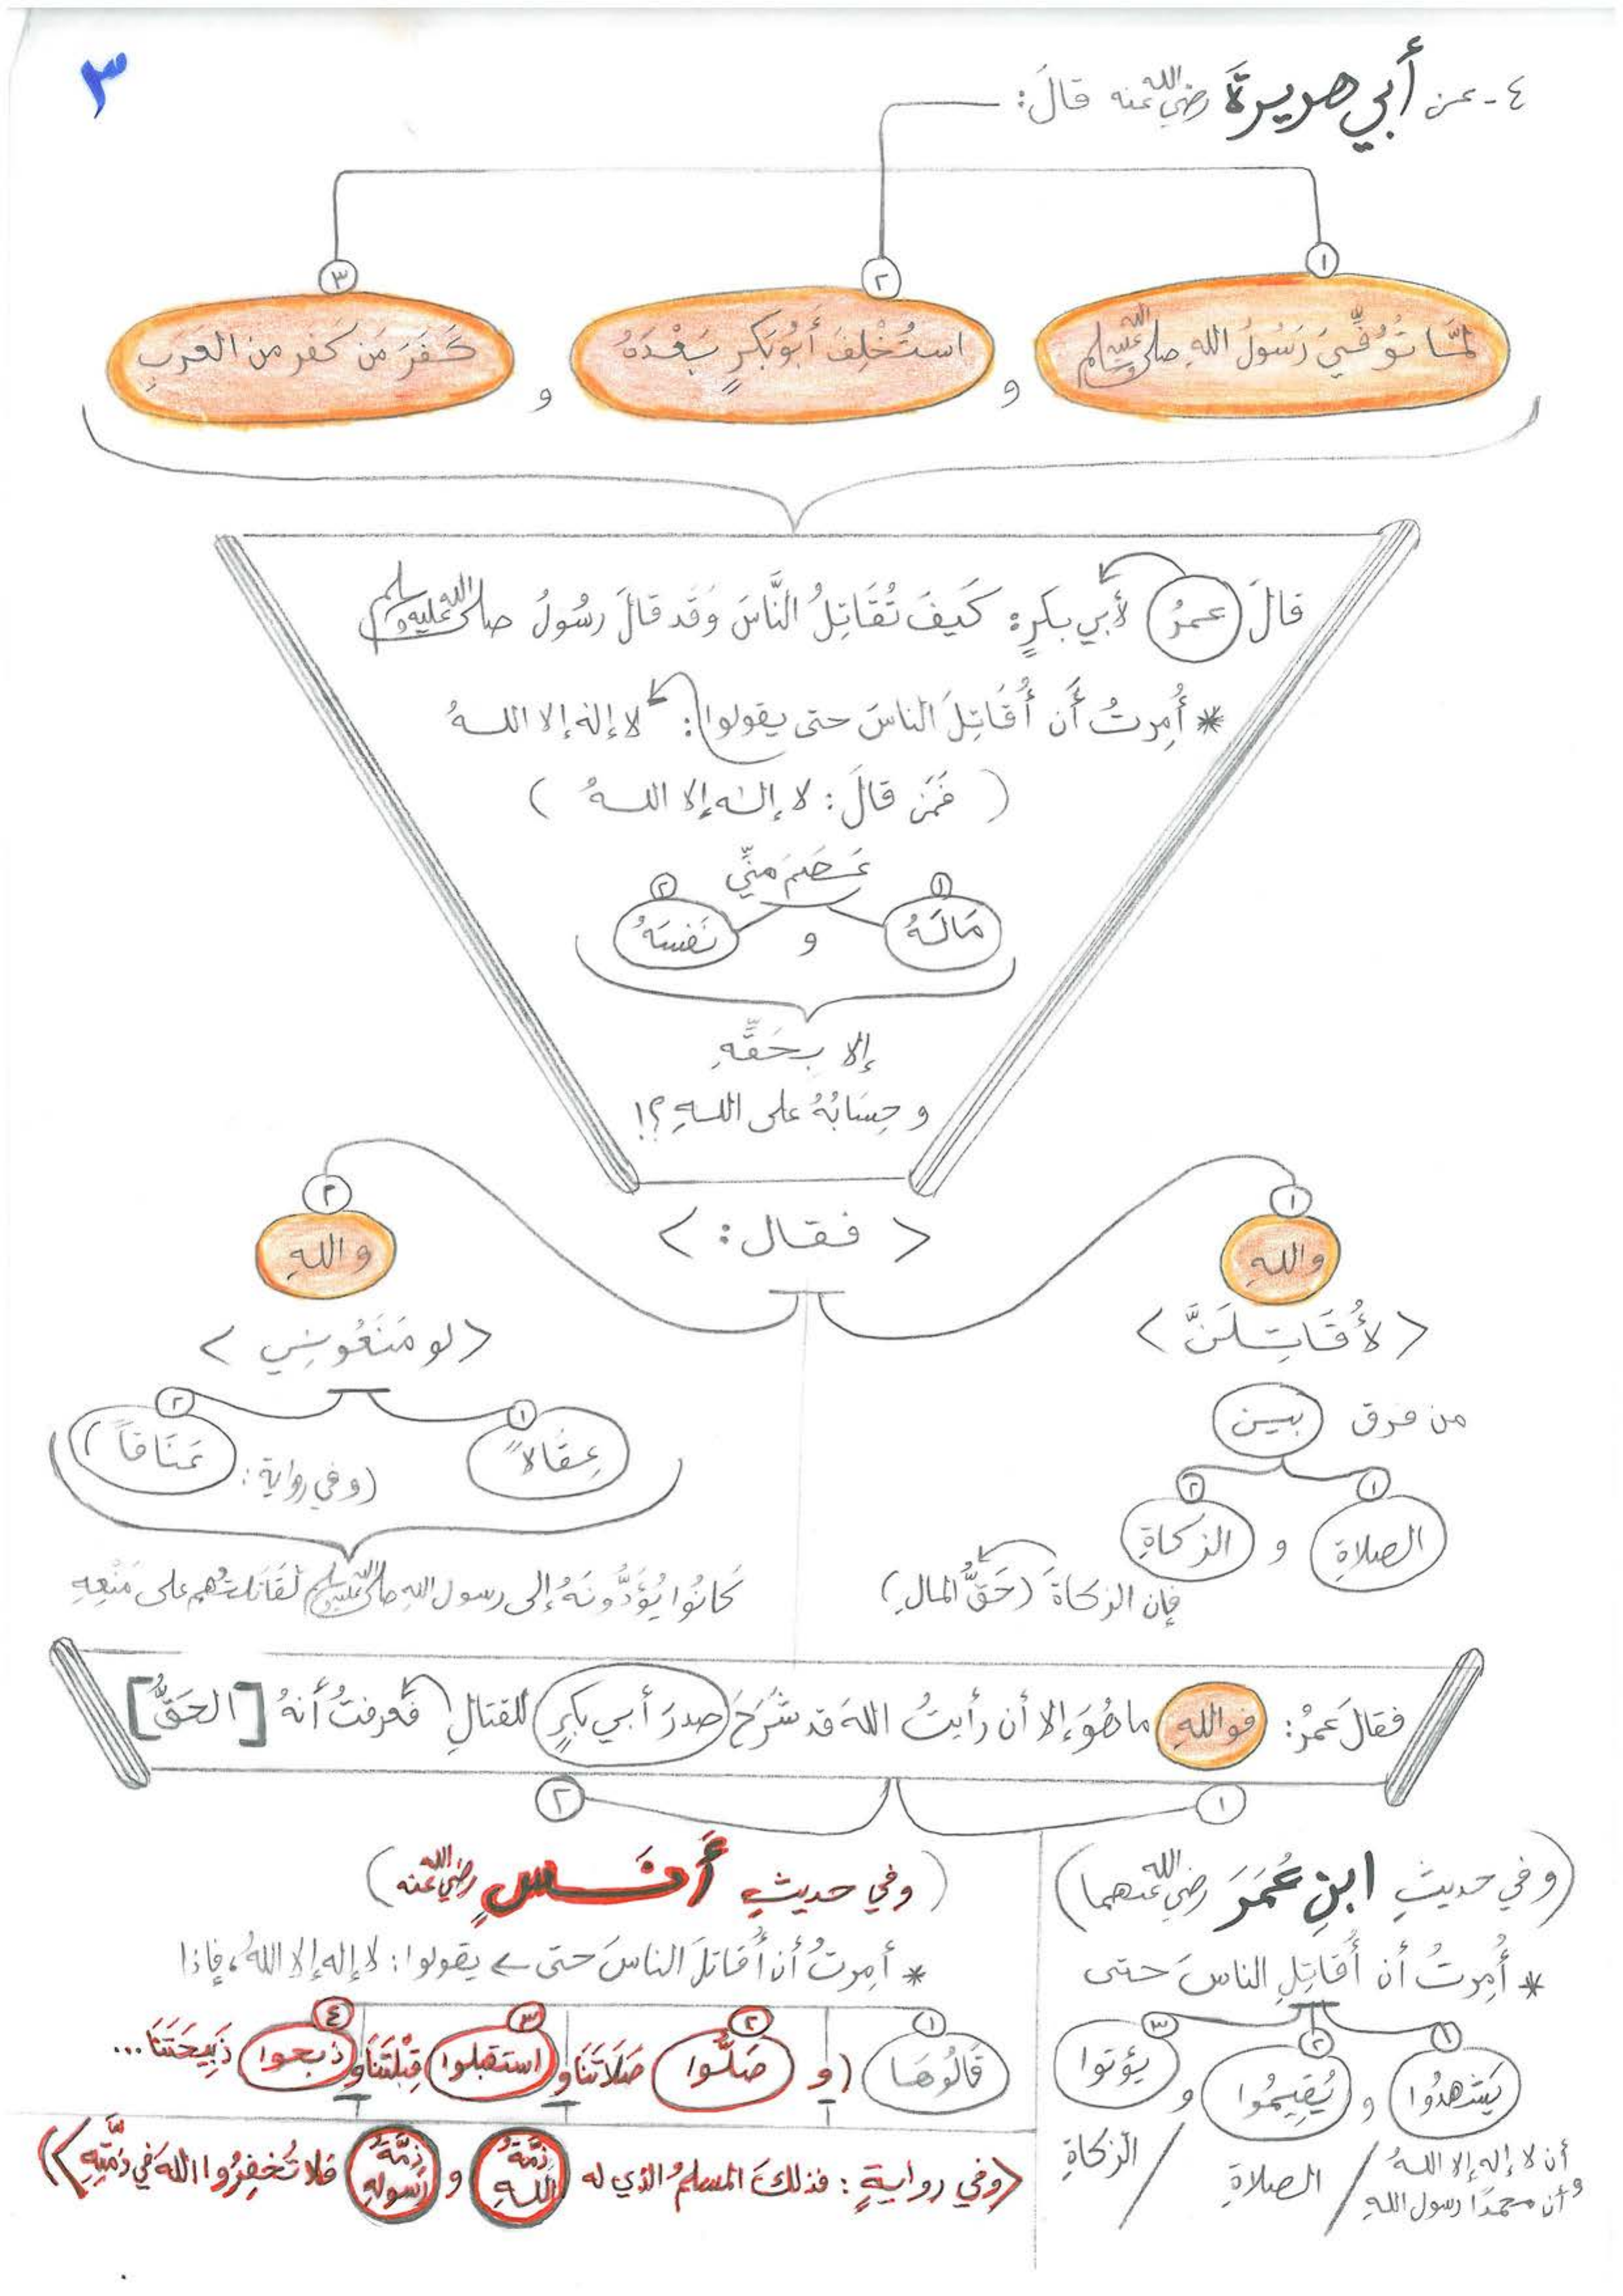 ٣
٤- عن أبي هريرةَ رضي الله عنه قالَ:
١ ٢ ٣
لمَّا تُوُفِّيَ رَسُولُ اللهِ صلى الله عليه وسلم و استُخْلِفَ أَبُو بَكرٍ بَعْدَهُ و كَفَرَ مَن كَفر من العَرَبِ
قالَ عمرُ لأبي بكرٍ: كَيفَ تُقَاتِلُ النَّاسَ وَقَد قالَ رسُولُ صلى الله عليه وسلم
* أُمِرتُ أَن أُقَاتِلَ الناسَ حتى يقولوا: لا إله إلا اللهُ
( فَمَن قالَ: لا إله إلا اللهُ )
عَصَمَ منِّي
١ ٢
مَالَهُ و نَفسَهُ
إلا بِحَقِّهِ
و حِسَابُهُ على اللهِ؟!
< فقال: >
١
واللهِ
< لأُقَاتِلَنَّ >
من فرق بين
١ ٢
الصلاةِ و الزكاةِ
فإن الزكاةَ (حَقُّ المالِ)
٢
واللهِ
< لو مَنَعُونِي >
١ ٢
عِقَالاً (و في رواية: عَنَاقاً)
كَانُوا يُؤَدُّونَهُ إلى رسول اللهِ صلى الله عليه وسلم لَقَاتَلتُهم على مَنْعِهِ
فقالَ عمرُ: فواللهِ ما هُوَ إلا أن رأيتُ اللهَ قد شَرَحَ صدرَ أبي بكرٍ للقتالِ فَعرفتُ أنهُ [الحَقُّ]
١ ٢
(و في حديثِ ابنِ عُمَرَ رضي الله عنهما)
* أُمِرتُ أن أُقاتِلَ الناسَ حتى
١ ٢ ٣
يَشهدُوا و يُقِيمُوا و يؤتوا
أن لا إله إلا اللهُ وأن محمدًا رسول اللهِ / الصلاةَ / الزكاةِ
(و في حديثِ أنسٍ رضي الله عنه)
* أمرتُ أن أُقاتلَ الناسَ حتى يقولوا: لا إله إلا اللهُ، فإذا
١ ٢ ٣ ٤
قَالُوهَا (و صَلَّوا صَلَاتَنَا و استقبلوا قِبْلَتَنَا و ذبحوا ذَبِيحَتَنَا...
(و في روايةٍ: فذلكَ المسلمُ الذي له ذمَّةُ اللهِ و ذِمَّةُ رسولِهِ فلا تُخفِرُوا اللهَ في ذمَّتِهِ))